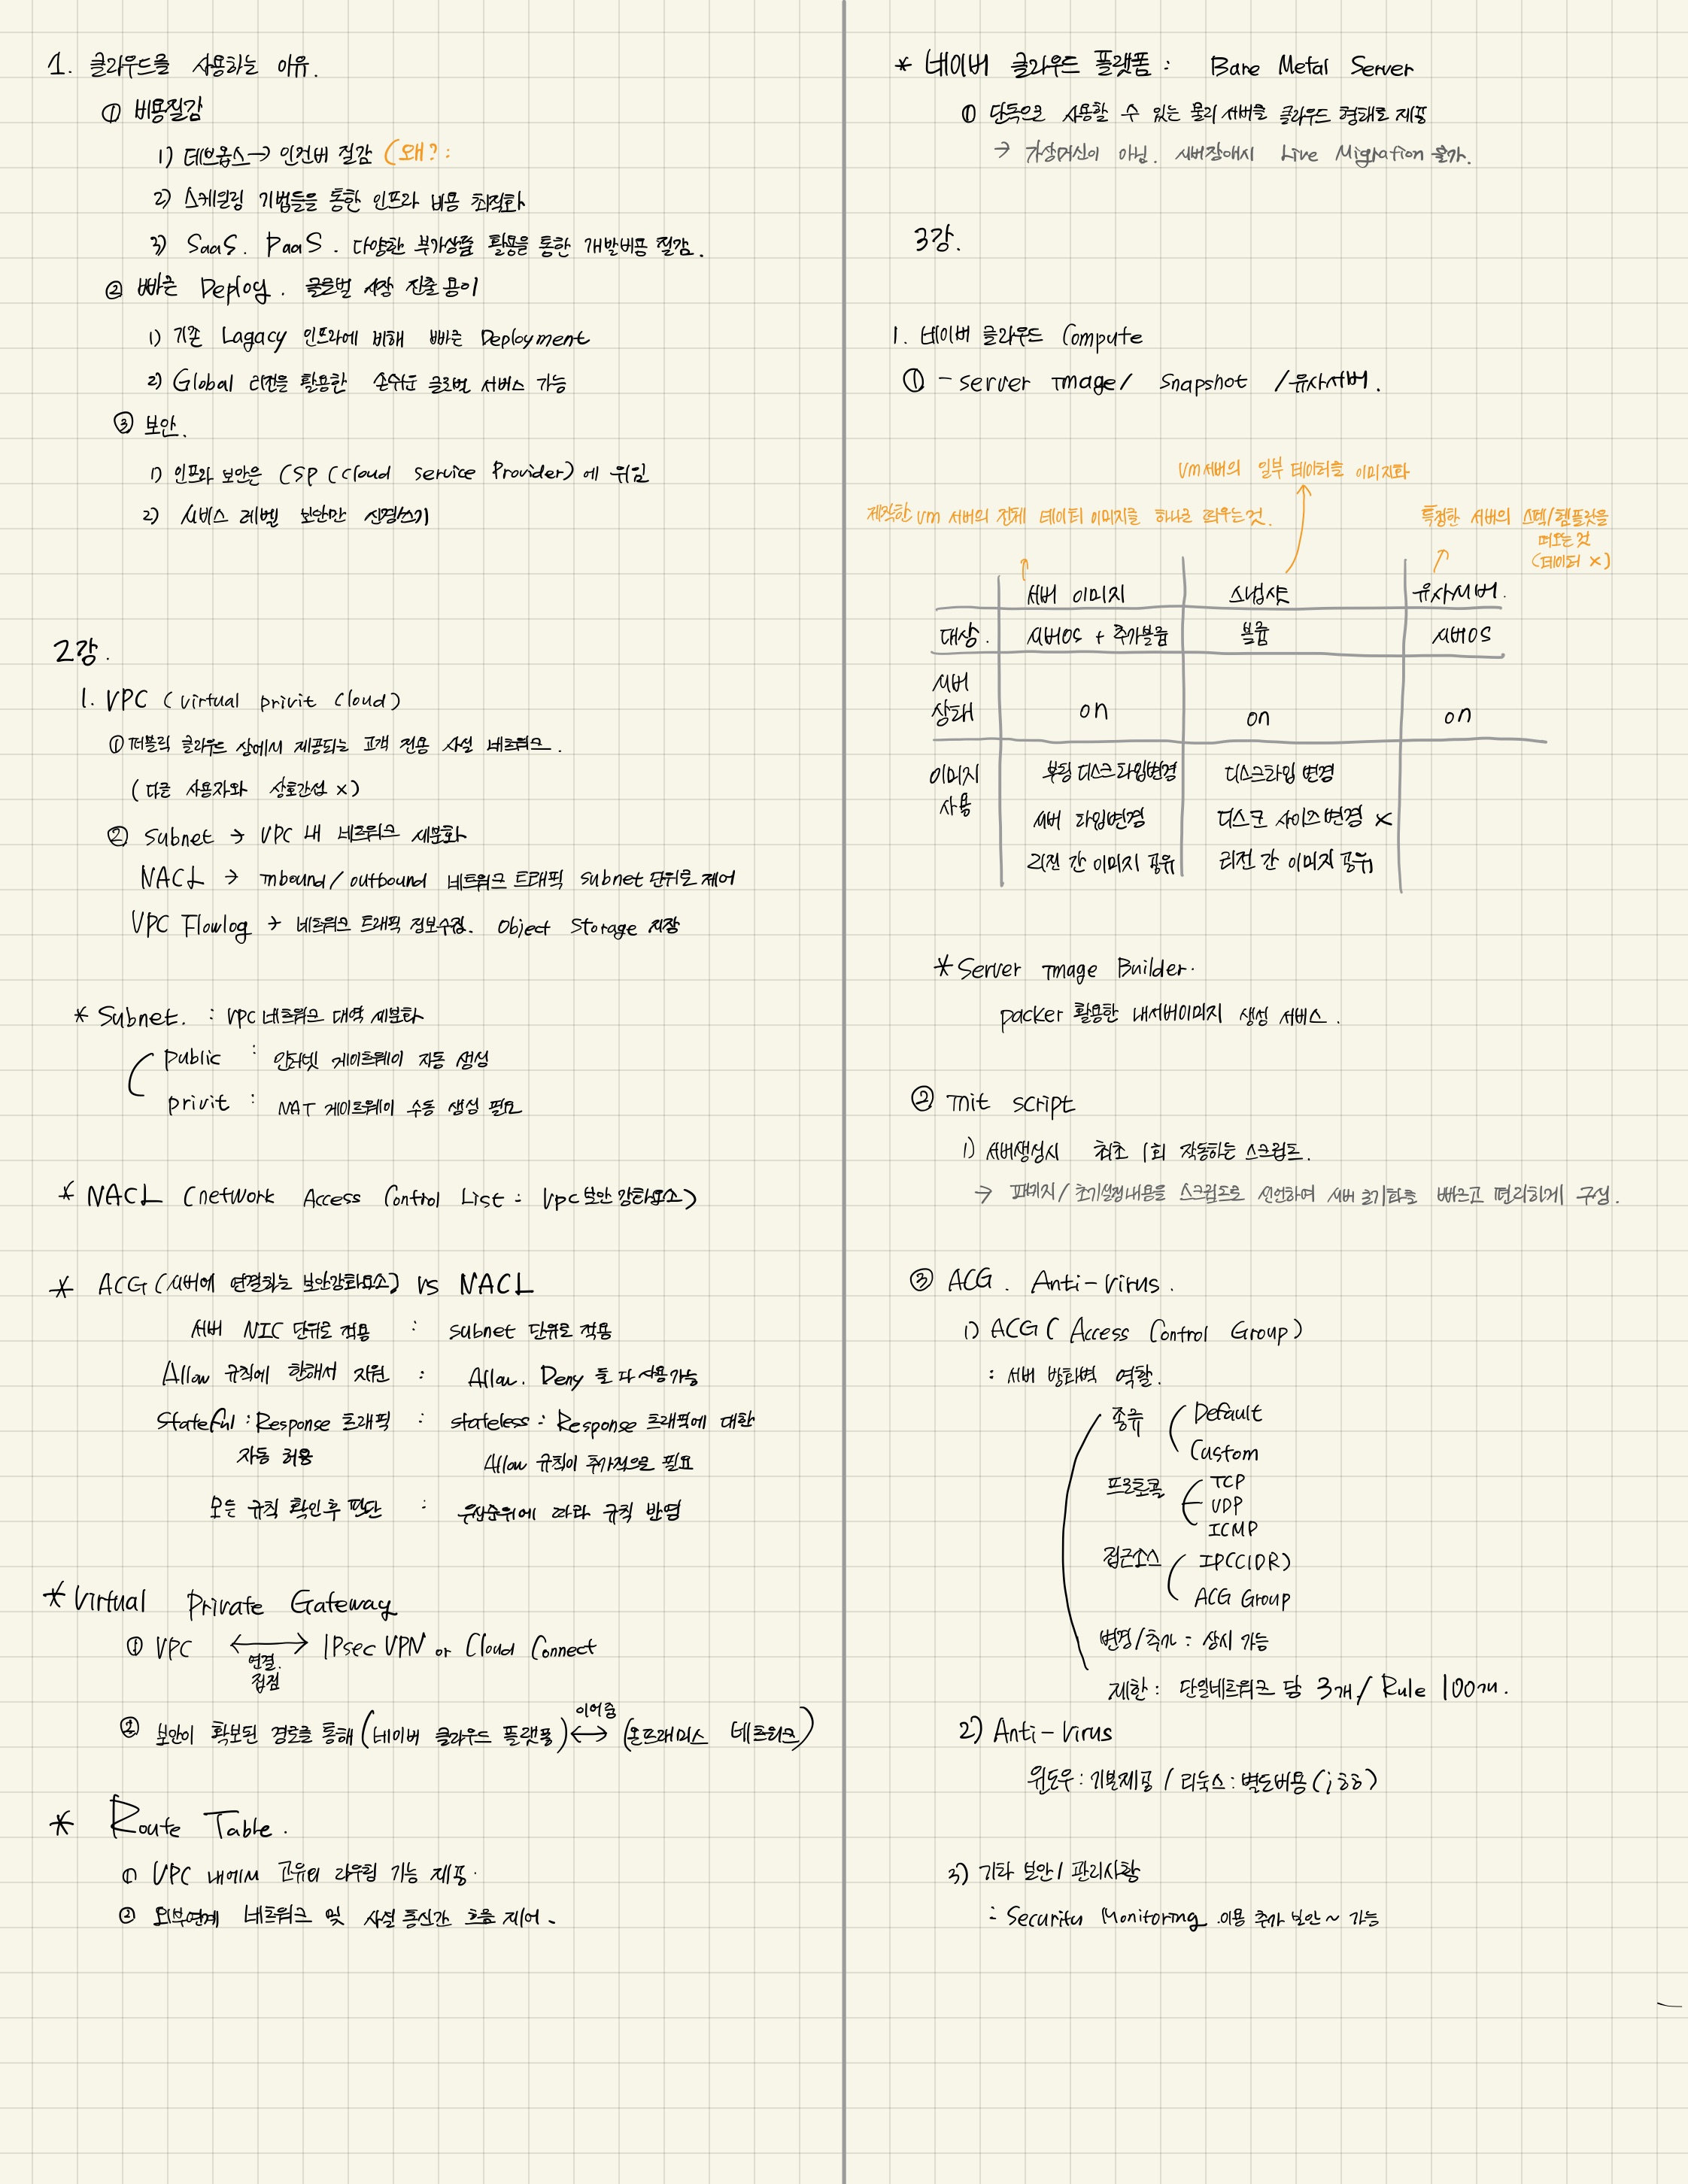 1. 클라우드를 사용하는 이유.
① 비용절감
1) 데브옵스 → 인건비 절감 (왜? :
2) 스케일링 기법들을 통한 인프라 비용 최적화
3) SaaS. PaaS. 다양한 부가상품 활용을 통한 개발비용 절감.
② 빠른 Deploy. 글로벌 시장 진출 용이
1) 기존 Lagacy 인프라에 비해 빠른 Deployment
2) Global 리전을 활용한 손쉬운 글로벌 서비스 가능
③ 보안.
1) 인프라 보안은 CSP (cloud service Provider)에 위임
2) 서비스 레벨 보안만 신경쓰기
2강.
1. VPC (virtual privit cloud)
① 퍼블릭 클라우드 상에서 제공되는 고객 전용 사설 네트워크.
(다른 사용자와 상호간섭 x)
② subnet → VPC 내 네트워크 세분화
NACL → Inbound/outbound 네트워크 트래픽 subnet 단위로 제어
VPC Flowlog → 네트워크 트래픽 정보수집. Object Storage 저장
* Subnet. : VPC 네트워크 대역 세분화
public : 인터넷 게이트웨이 자동 생성
privit : NAT 게이트웨이 수동 생성 필요
* NACL (network Access Control List : Vpc 보안 강화요소)
* ACG (서버에 연결하는 보안강화요소) vs NACL
서버 NIC 단위로 적용 : subnet 단위로 적용
Allow 규칙에 한해서 지원 : Allow. Deny 둘 다 사용가능
Stateful : Response 트래픽 : stateless : Response 트래픽에 대한
자동 허용 Allow 규칙이 추가적으로 필요
모든 규칙 확인후 판단 : 우선순위에 따라 규칙 반영
* Virtual Private Gateway
① VPC ↔ IPsec VPN or Cloud Connect
연결.
접점
② 보안이 확보된 경로를 통해 (네이버 클라우드 플랫폼) ↔ (온프래미스 네트워크)
이어줌
* Route Table.
① VPC 내에서 고유의 라우팅 기능 제공.
② 외부연계 네트워크 및 사설 통신간 흐름 제어.
* 네이버 클라우드 플랫폼 : Bare Metal Server
① 단독으로 사용할 수 있는 물리 서버를 클라우드 형태로 제공
→ 가상머신이 아님. 서버장애시 Live Migration 불가.
3강.
1. 네이버 클라우드 Compute
① - server Image/ Snapshot /유사서버.
vm서버의 일부 데이터를 이미지화
제작한 vm 서버의 전체 데이터 이미지를 하나로 띄우는것.
특정한 서버의 스펙/템플릿을
떠오는 것
(데이터 x)
서버 이미지 스냅샷 유사서버.
대상. 서버OS + 추가볼륨 볼륨 서버OS
서버
상태 on on on
이미지 부팅 디스크 타입변경 디스크타입 변경
사용 서버 타입변경 디스크 사이즈변경 x
리전 간 이미지 공유 리전 간 이미지 공유
* Server Image Builder.
packer 활용한 내서버이미지 생성 서비스.
② Init script
1) 서버생성시 최초 1회 작동하는 스크립트.
→ 패키지/초기설정내용을 스크립트로 선언하여 서버 초기화를 빠르고 편리하게 구성.
③ ACG. Anti-virus.
1) ACG ( Access Control Group)
: 서버 방화벽 역할.
종류 Default
Custom
프로토콜 TCP
UDP
ICMP
접근소스 IP(CIDR)
ACG Group
변경/추가 : 상시 가능
제한 : 단일네트워크 당 3개/ Rule 100개.
2) Anti-Virus
윈도우 : 기본제공 / 리눅스 : 별도비용 (;ㅎㅎ)
3) 기타 보안/관리사항
: Security Monitoring 이용 추가 보안~ 가능